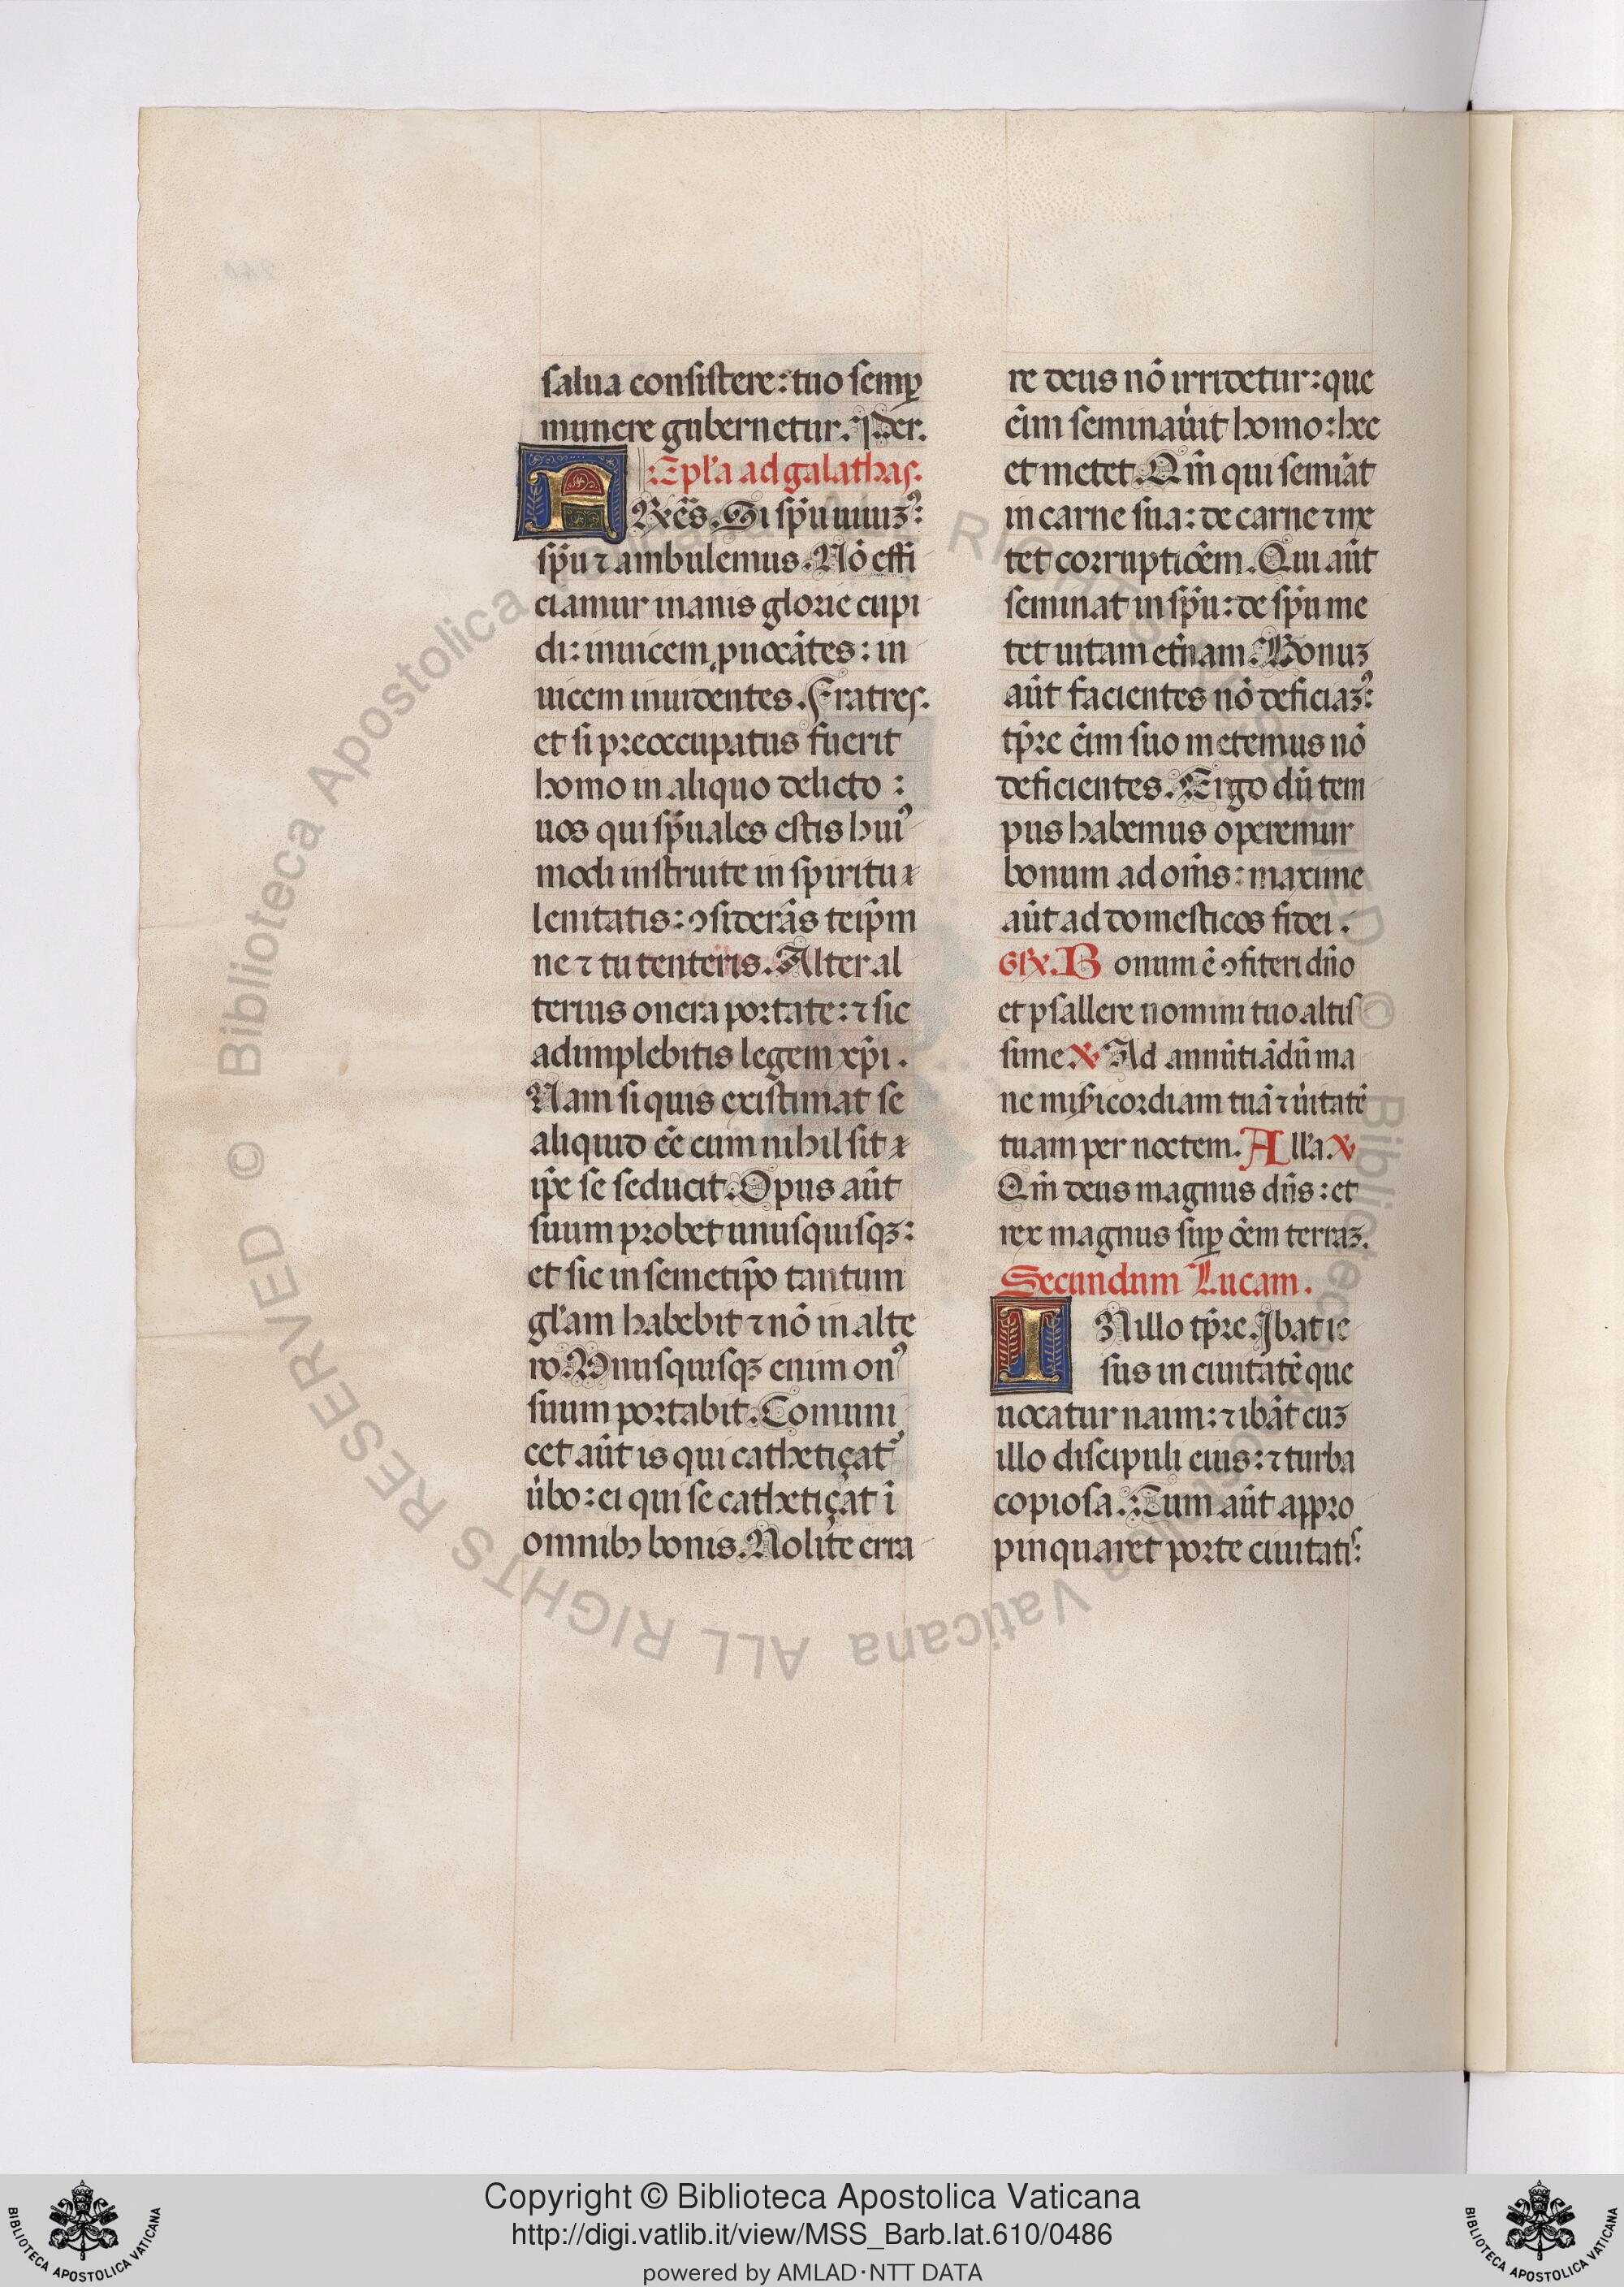 salua consistere: tuo semꝑ
munere gubernetur. Per.
:Epl̃a ad galathas.
A Rẽs. Si sp̃u uiuiꝫ᾽:
sp̃u ⁊ ambulemus. Nõ effi
ciamur inanis glorie cupi
di: inuicem ꝓuocãtes: in
uicem inuidentes. Fratres.
et si preoccupatus fuerit
homo in aliquo delicto:
uos qui sp̃uales estis huiꝰ
modi instruite in spiritu
lenitatis: ꝯsiderãs teip̃m
ne ⁊ tu tenteris. Alter al
terius onera portate: ⁊ sic
adimplebitis legem xp̃i.
Nam si quis existimat se
aliquid eẽ cum nihil sit
ip̃e se seducit. Opus aũt
suum probet unusquisqꝫ:
et sic in semetip̃o tantum
gl̃am habebit ⁊ nõ in alte
ro. Vnusquisqꝫ enim onꝰ
suum portabit. Comuni
cet aũt is qui cathetiçat᾽
ũbo: ei qui se cathetiçat ĩ
omnibꝫ bonis. Nolite erra
re deus nõ irridetur: que
eĩm seminaũit homo: hec
et metet. Qm̃ qui semĩat
in carne sua: de carne ⁊ me
tet corruptiõem. Qui aũt
seminat in sp̃u: de sp̃u me
tet uitam et̃nam. Bonuꝫ
aũt facientes nõ deficiaꝫ᾽:
tp̃re eĩm suo metemus nõ
deficientes. Ergo dũ tem
pus habemus operemur
bonum ad om̃s: maxime
aũt ad domesticos fidei.
Gr̃. B onum ẽ ꝯfiteri dño
et psallere nomini tuo altis
sime ℣ Ad annũtiãdũ ma
ne mis̃icordiam tuã ⁊ ũitatẽ
tuam per noctem. All̃a ℣
Qm̃ deus magnus dñs: et
rex magnus suꝑ õem terraꝫ.
Secundum Lucam.
I N illo tp̃re. Ibat ie
sus in ciuitatẽ que
uocatur naim: ⁊ ibãt cuꝫ
illo discipuli eius: ⁊ turba
copiosa. Cum aũt appro
pinquaret porte ciuitatis:
© Biblioteca Apostolica Vaticana ALL RIGHTS RESERVED © Biblioteca Apostolica Vaticana ALL RIGHTS RESERVED
Copyright © Biblioteca Apostolica Vaticana
http://digi.vatlib.it/view/MSS_Barb.lat.610/0486
powered by AMLAD·NTT DATA
BIBLIOTECA APOSTOLICA VATICANA
BIBLIOTECA APOSTOLICA VATICANA